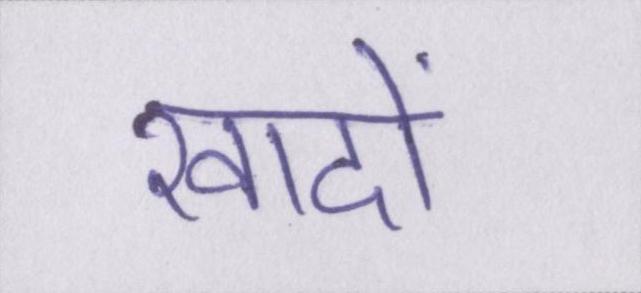 खादों